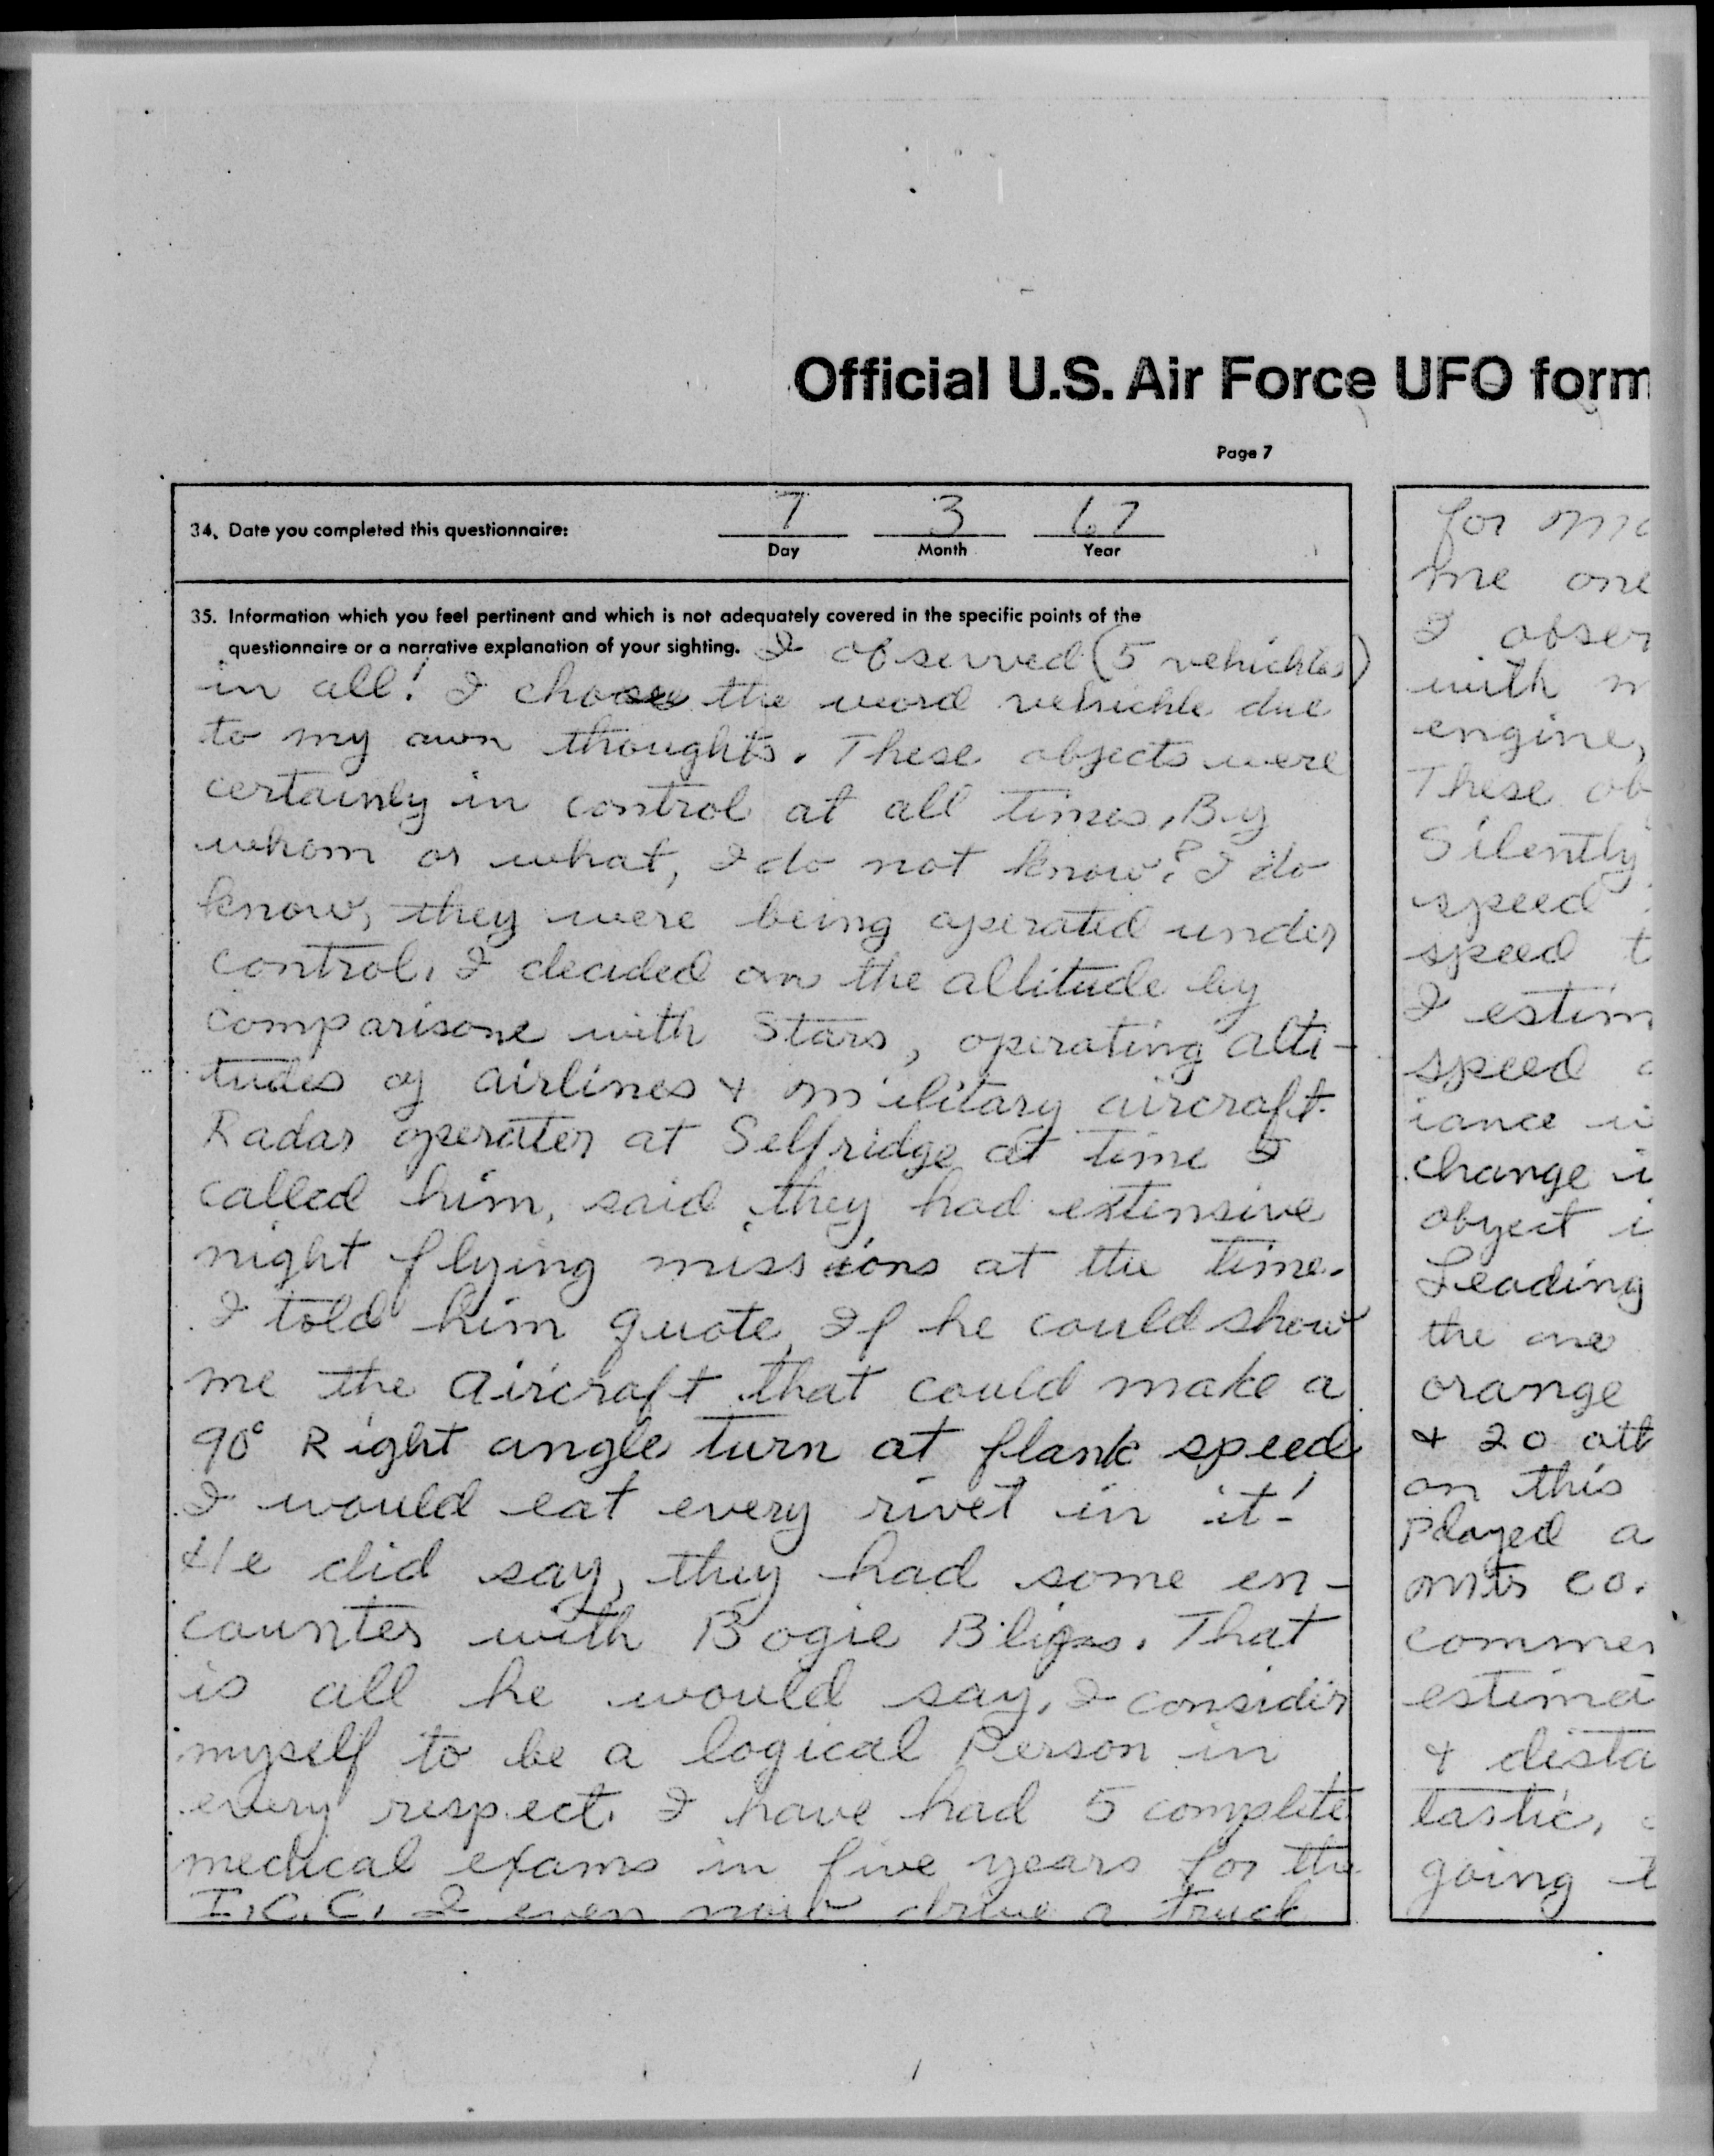 Official U.S. Air Force UFO form
Page 7
34. Date you completed this questionnaire: 7 3 67
Day Month Year
35. Information which you feel pertinent and which is not adequately covered in the specific points of the
questionnaire or a narrative explanation of your sighting. I observed (5 vehichles)
in all! I choose the word vehichle due
to my own thoughts. These objects were
certainly in control at all times. By
whom or what, I do not know? I do
know, they were being operated under
control. I decided on the altitude by
comparisone with Stars, operating alti-
tudes of airlines & military aircraft.
Radar operater at Selfridge at time I
called him, said they had extensive
night flying missions at the time.
I told him quote, If he could show
me the aircraft that could make a
90° Right angle turn at flank speed
I would eat every rivet in it!
He did say, they had some en-
counter with Bogie Blips. That
is all he would say. I consider
myself to be a logical Person in
every respect. I have had 5 complete
medical exams in five years for the
I.C.C. I even now drive a truck
for
me one
I obser
with
engine,
These ob
Silently
speed
speed t
I estim
speed
iance
change
object
Leading
the one
orange
& 20
on this
played a
co.
commer
estima
& dista
tastic,
going t